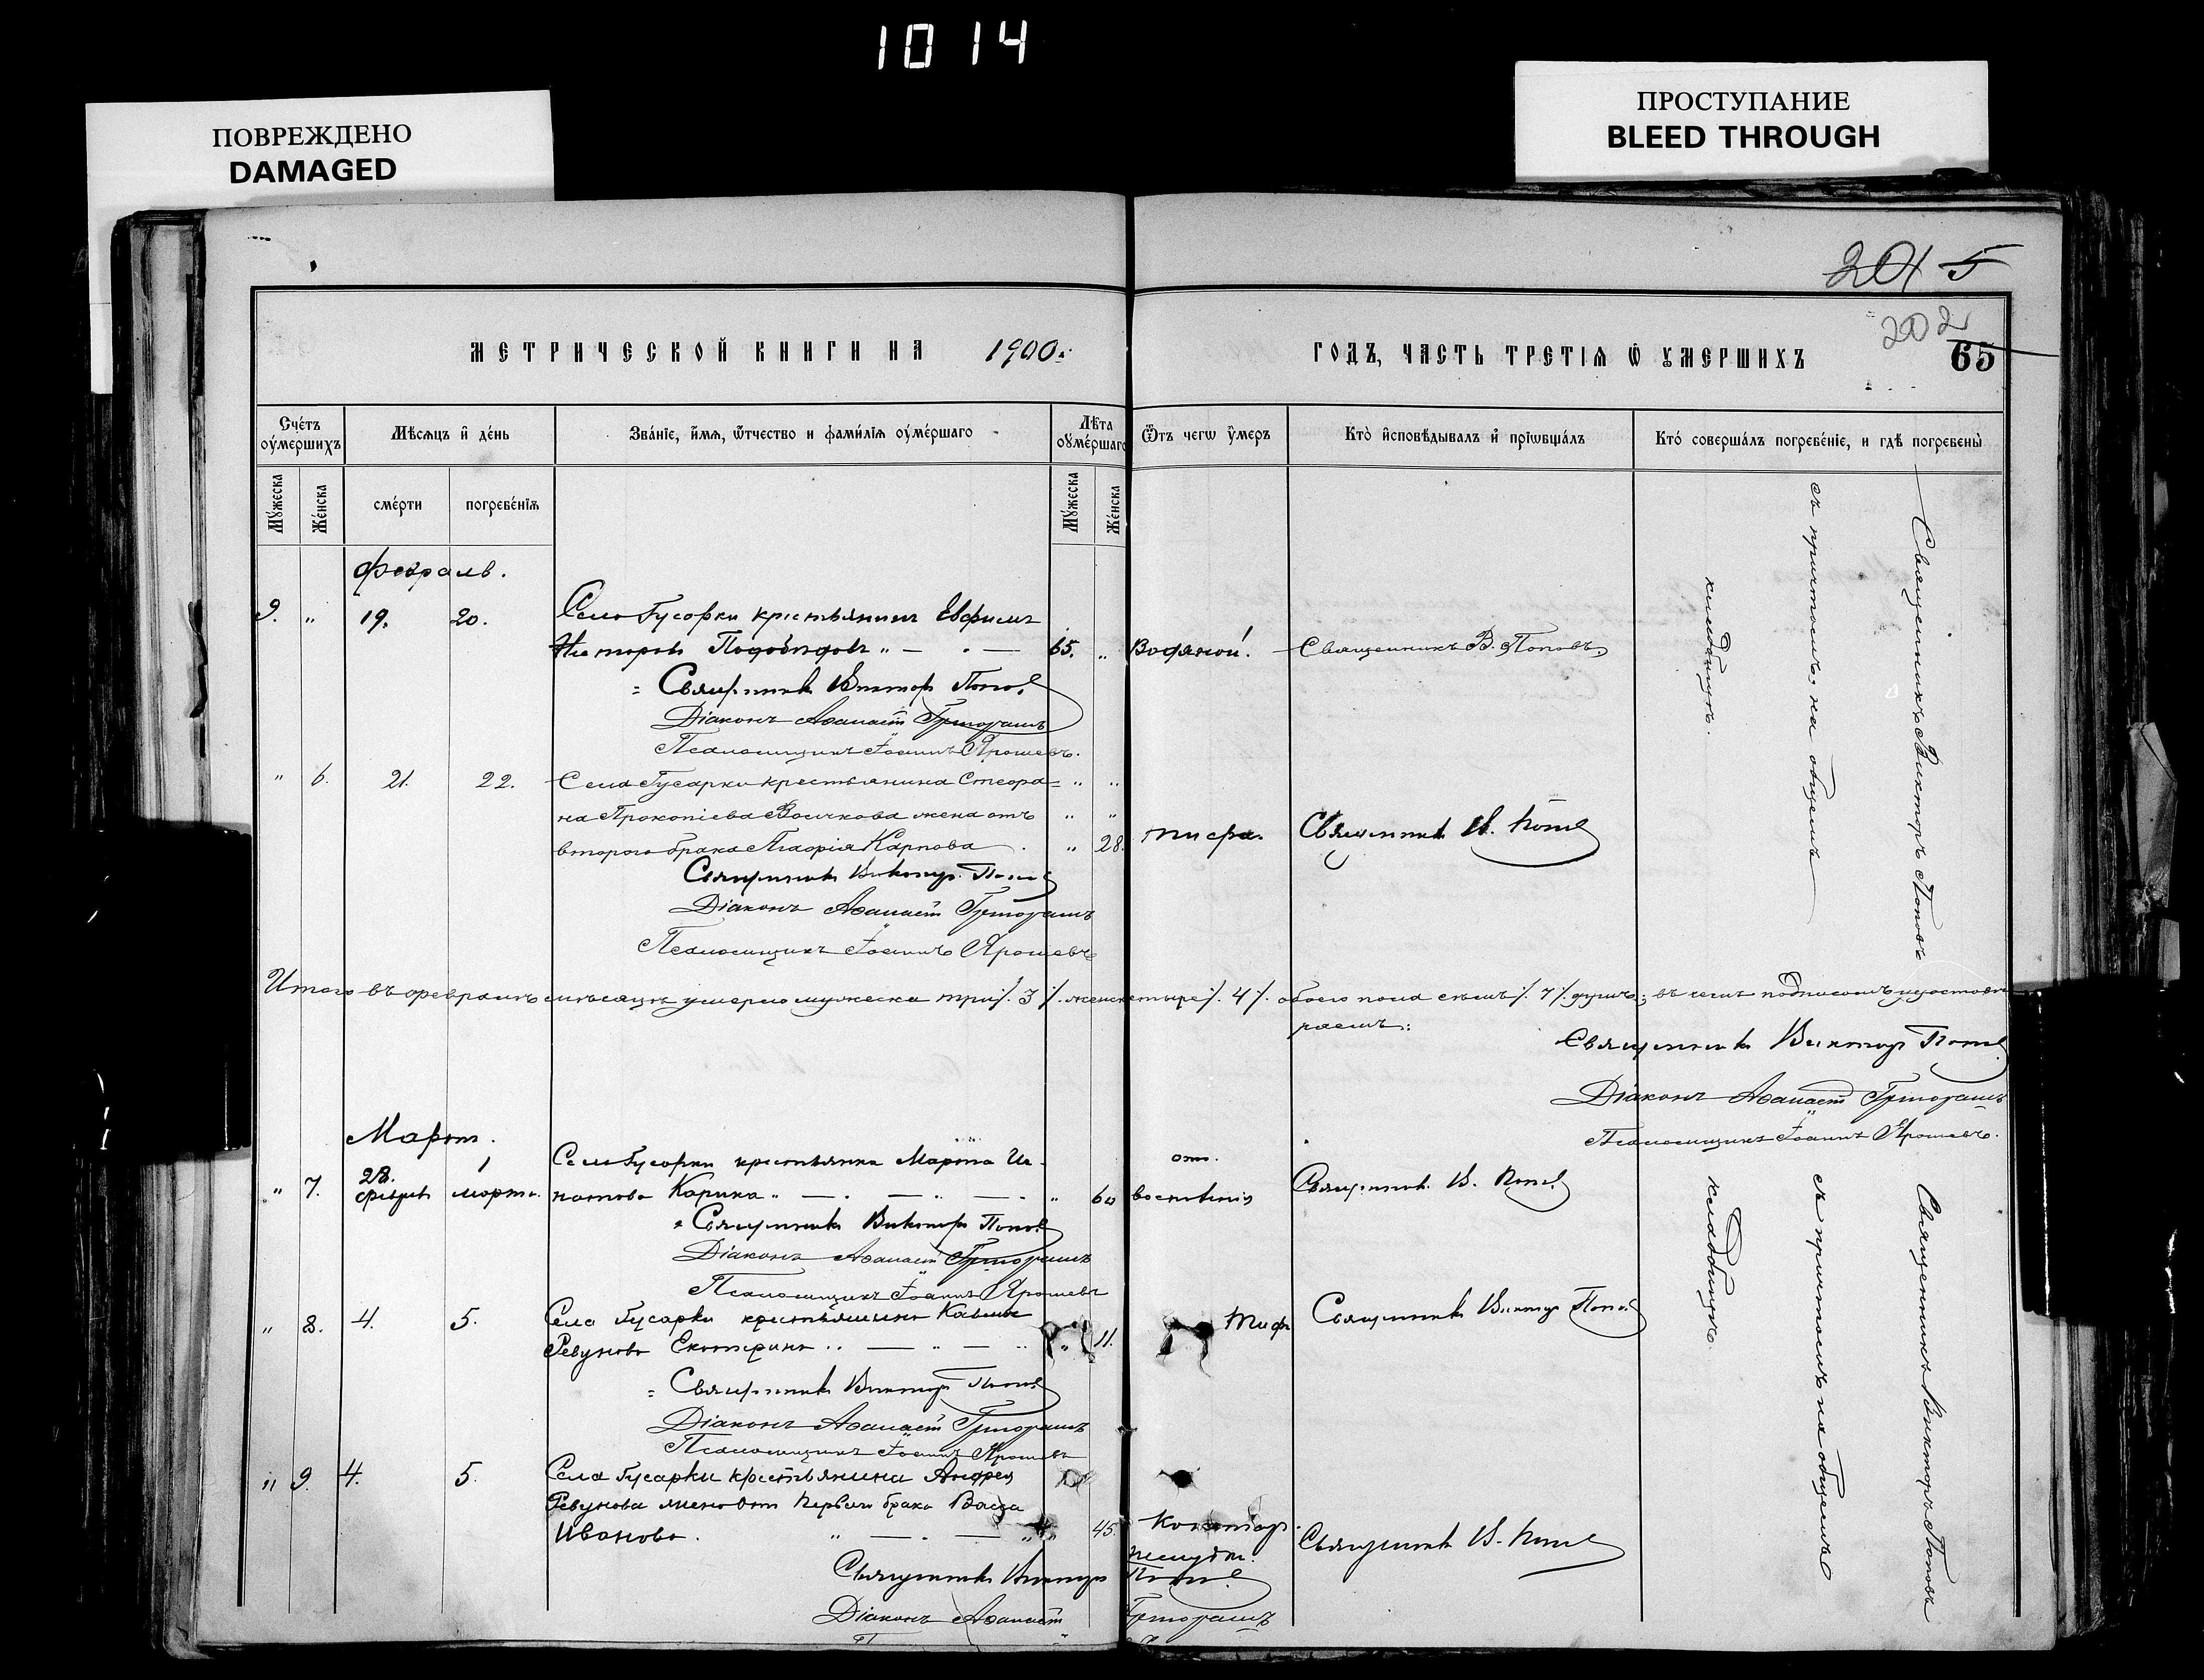 1014
ПОВРЕЖДЕНО
DAMAGED
ПРОСТУПАНИЕ
BLEED THROUGH
201 5
202
65
МЕТРИЧЕСКОЙ КНИГИ НА 1900 ГОДЪ, ЧАСТЬ ТРЕТІѦ Ѿ ОУМЕРШИХЪ
Счéтъ оу́мершихъ
Мѣсяцъ и́ дéнь
Звáніе, и́мѧ, ѻ҆́тчество и фами́лїѧ оумéршаго
Лѣта оумéршагѡ
Ѿ чегѡ̀ ᲂу҆́меръ
Ктò и҆сповѣ́дывалъ и҆ прїѡбщáлъ
Ктó совершáлъ погребéніе, и гдѣ̀ погребены̀
Мýжеска
Жéнска
смéрти
погребéнїѧ
Мýжеска
Жéнска
Февраль.
9. " 19. 20. Села Гусарки крестьянинъ Евфимъ
Несторовъ 65. " Водяной. Священникъ В. Поповъ.
Священникъ Викторъ Поповъ
Діаконъ Аѳанасій Григорашъ
Псаломщикъ Іоаннъ Ярошевъ.
" 6. 21. 22. Села Гусарки крестьянина Стефа= " "
на Прокопіева Волчкова жена отъ " "
второго брака Карпова " 28. тифа. Священникъ В. Поповъ
Священникъ Викторъ Поповъ
Діаконъ Аѳанасій Григорашъ
Псаломщикъ Іоаннъ Ярошевъ
Священникъ Викторъ Поповъ
съ причтомъ, на общемъ
кладбищѣ.
Итого въ февралѣ мѣсяцѣ умерло мужеска три /. 3 /. женск. четыре /. 4 /. обоего пола семь /. 7 /. душъ; въ чемъ подписомъ удостовѣ
ряемъ:
Священникъ Викторъ Поповъ
Діаконъ Аѳанасій Григорашъ
Псаломщикъ Іоаннъ Ярошевъ.
Мартъ.
" 7. 28. февр. 1 марта. Села Гусарки крестьянка Марѳа Иг-
натова Карика " 60 отъ воспаленія Священникъ В. Поповъ
Священникъ Викторъ Поповъ
Діаконъ Аѳанасій Григорашъ
Псаломщикъ Іоаннъ Ярошевъ
" 8. 4. 5. Села Гусарки крестьянина
Ревунова Екатерина " 11. тифа Священникъ Викторъ Поповъ
Священникъ Викторъ Поповъ
Діаконъ Аѳанасій Григорашъ
Псаломщикъ Іоаннъ Ярошевъ
" 9. 4. 5. Села Гусарки крестьянина Андрея
Ревунова жена отъ перваго брака
Иванова. " 45 желудка. Священникъ В. Поповъ
Священникъ Викторъ Поповъ
Діаконъ Аѳанасій Григорашъ
Священникъ Викторъ Поповъ
съ причтомъ на общемъ
кладбищѣ.